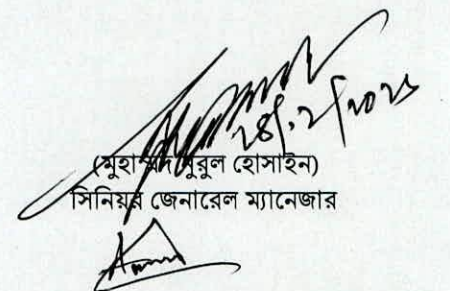 ২৪/২/২০২৫
(মুহাম্মদ নুরুল হোসাইন)
সিনিয়র জেনারেল ম্যানেজার